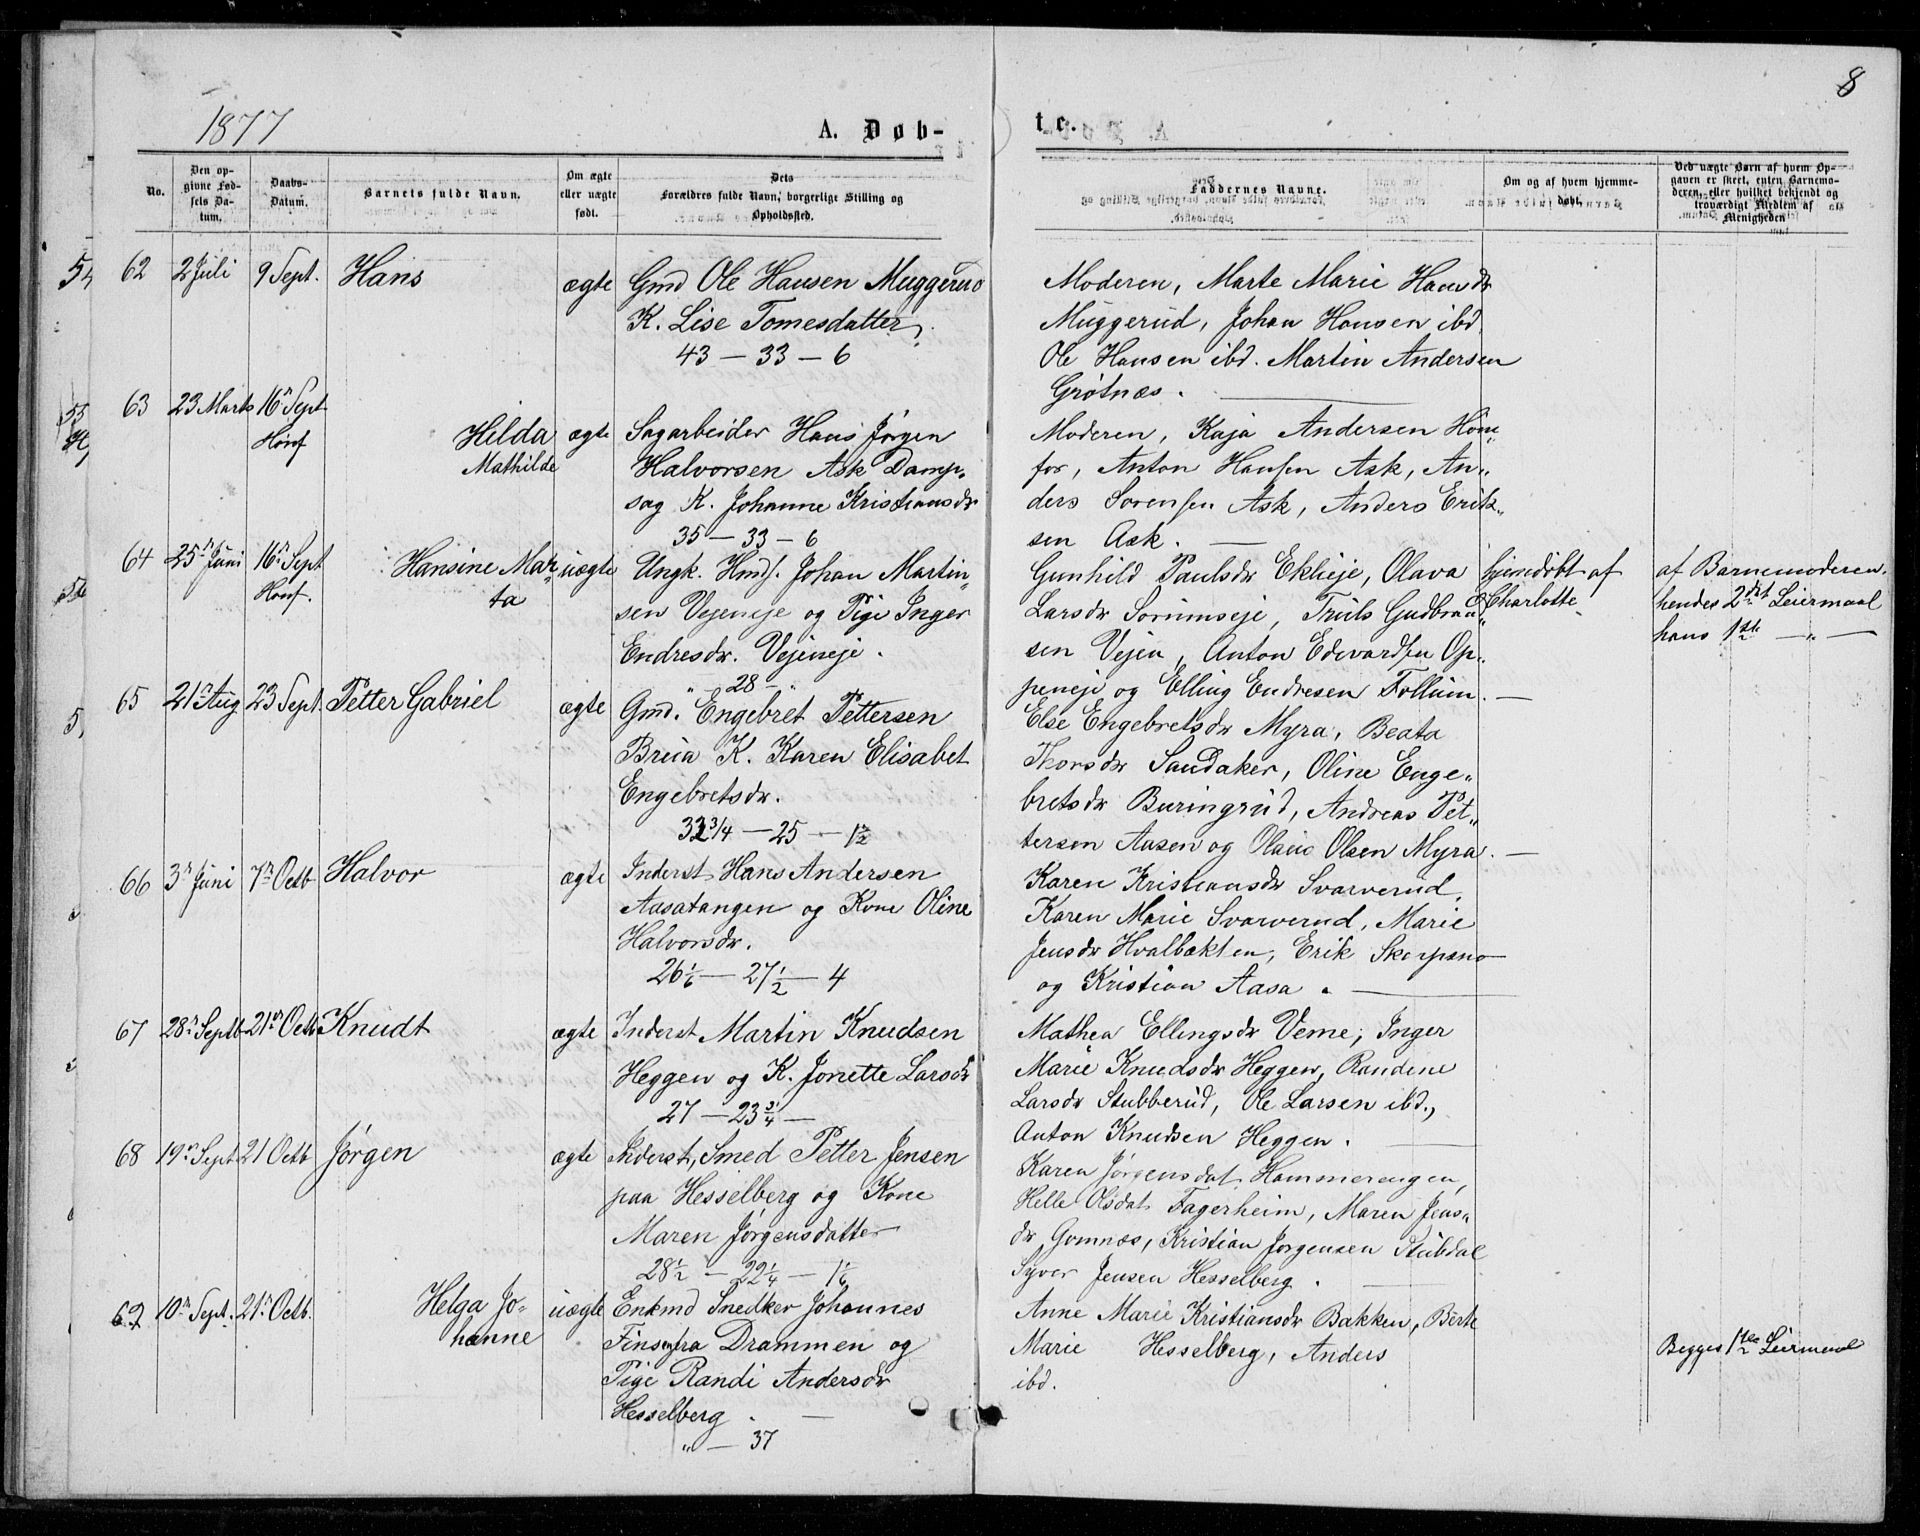 8
1877
A. Døb-
te.
No.
Den op-
givne Fød-
sels Da-
tum.
Daabs-
Datum.
Barnets fulde Navn.
Om ægte
eller uægte
født.
Dets
Forældres fulde Navn, borgerlige Stilling og
Opholdssted.
Faddernes Navne.
Om og af hvem hjemme-
døbt.
Ved uægte Børn af hvem Op-
gaven er skeet, enten Barnemo-
deren, eller hvilket bekjendt og
troværdigt Medlem af
Menigheden
62 2 Juli 9 Sept. Hans ægte Gmd Ole Hansen Muggerud
K. Lise Tomesdatter.
43 — 33 — 6
Moderen, Marte Marie Hansdr
Muggerud, Johan Hansen ibd.
Ole Hansen ibd. Martin Andersen
Grøtnæs.
63 23 Marts 16n Sept
Hønf
Hilda
Mathilde
ægte
Sagarbeider Hans Jørgen
Halvorsen Ask Damp-
sag K. Johanne Kristiansdr
35 — 33 — 6
Moderen, Kaja Andersen Høne-
fos, Anton Hansen Ask, An-
ders Sorensen Ask, Anders Erik-
sen Ask. —
64 25n Juni 16n Sept
Hønf.
Hansine Mar-
ta
uægte
Ungk. Hmds. Johan Martin-
sen Vejeneje og Pige Inger
Endresdr. Vejeneje.
" 28 - "
Gunhild Paulsdr Ekleje, Olava
Larsdr Sørumseje, Truls Gudbrand-
sen Vejen, Anton Edvardsen Op-
peneje og Elling Endresen Follum. —
hjemdøbt af
Charlotte
af Barnemoderen.
hendes 2det Leiermaal
hans 1ste — " —
65 21n Aug 23 Sept. Petter Gabriel ægte Gmd. Engebret Pettersen
Brua K. Karen Elisabet
Engebretsdr.
32 3/4 — 25 — 1 1/2
Else Engebretsdr Myra, Beata
Thorsdr Sandaker, Oline Enge-
bretsdr Buringrud, Andreas Pet-
tersen Aasen og Olaus Olsen Myra. —
66 3n Juni 7n Octb Halvor ægte Inderst Hans Andersen
Aasatangen og Kone Oline
Halvorsdr.
26 1/6 — 27 1/2 — 4
Karen Kristiansdr Svarverud,
Karen Marie Svarverud, Marie
Jensdr Hvalbakken, Erik
og Kristian Aasa.
67 28n Septb 21n Octb Knudt ægte Inderst Martin Knudsen
Heggen og K. Jonette Larsdr
27 — 23 3/4 —
Mathea Ellingsdr Veme, Inger
Marie Knudsdr Heggen, Randine
Larsdr Stubberud, Ole Larsen ibd.,
Anton Knudsen Heggen.
68 19n Sept 21 Octb Jørgen ægte Inderst, Smed Petter Jensen
paa Hesselberg og Kone
Maren Jørgensdatter
28 1/2 — 22 1/4 — 1 1/6
Karen Jørgensdat. Hammerengen,
Helle Olsdat. Fagerheim, Maren Jens-
dr, Gomnæs, Kristian Jørgensen Stubdal
Syver Jensen Hesselberg.
69 10n Sept. 21n Octb. Helga Jo-
hanne
uægte
Enkmd Snedker Johannes
Finsen fra Drammen og
Pige Randi Andersdr
Hesselberg. —
" — 37
Anne Marie Kristiansdr Bakken, Berte
Marie Hesselberg, Anders
ibd.
Begges 1ste Leiermaal